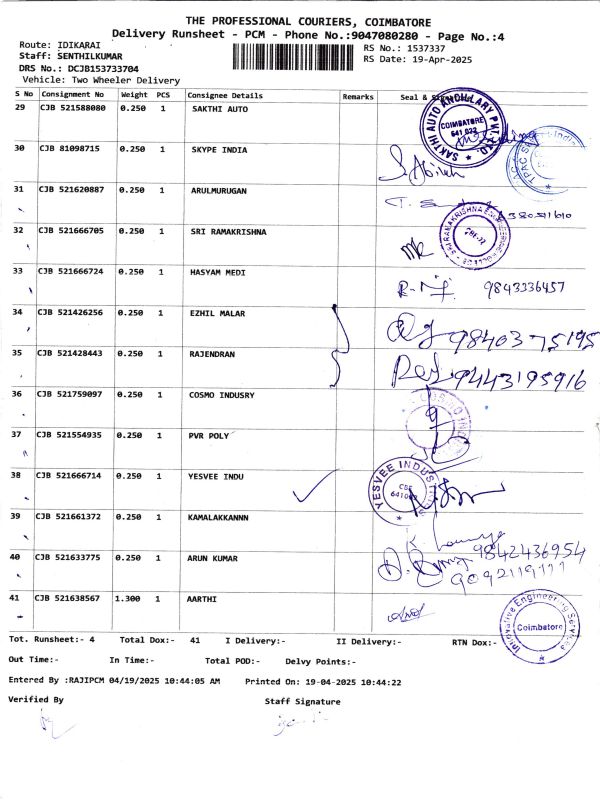 THE PROFESSIONAL COURIERS, COIMBATORE
Delivery Runsheet - PCM - Phone No.:9047080280 - Page No.:4
Route: IDIKARAI
Staff: SENTHILKUMAR
DRS No.: DCJB153733704
Vehicle: Two Wheeler Delivery
RS No.: 1537337
RS Date: 19-Apr-2025
S No Consignment No Weight PCS Consignee Details Remarks Seal &
29 CJB 521588080 0.250 1 SAKTHI AUTO
SAKTHI AUTO ANCILLARY PVT. LTD. COIMBATORE 641 022
30 CJB 81098715 0.250 1 SKYPE INDIA
31 CJB 521620887 0.250 1 ARULMURUGAN
32 CJB 521666705 0.250 1 SRI RAMAKRISHNA
33 CJB 521666724 0.250 1 HASYAM MEDI 9843336457
34 CJB 521426256 0.250 1 EZHIL MALAR 9840375195
35 CJB 521428443 0.250 1 RAJENDRAN 9443195916
36 CJB 521759097 0.250 1 COSMO INDUSRY
37 CJB 521554935 0.250 1 PVR POLY
38 CJB 521666714 0.250 1 YESVEE INDU
YESVEE INDUSTRIES CBE
39 CJB 521661372 0.250 1 KAMALAKKANNN
40 CJB 521633775 0.250 1 ARUN KUMAR 9842436954
41 CJB 521638567 1.300 1 AARTHI
Innovative Engineering Services Coimbatore
Tot. Runsheet:- 4 Total Dox:- 41 I Delivery:- II Delivery:- RTN Dox:-
Out Time:- In Time:- Total POD:- Delvy Points:-
Entered By :RAJIPCM 04/19/2025 10:44:05 AM Printed On: 19-04-2025 10:44:22
Verified By Staff Signature